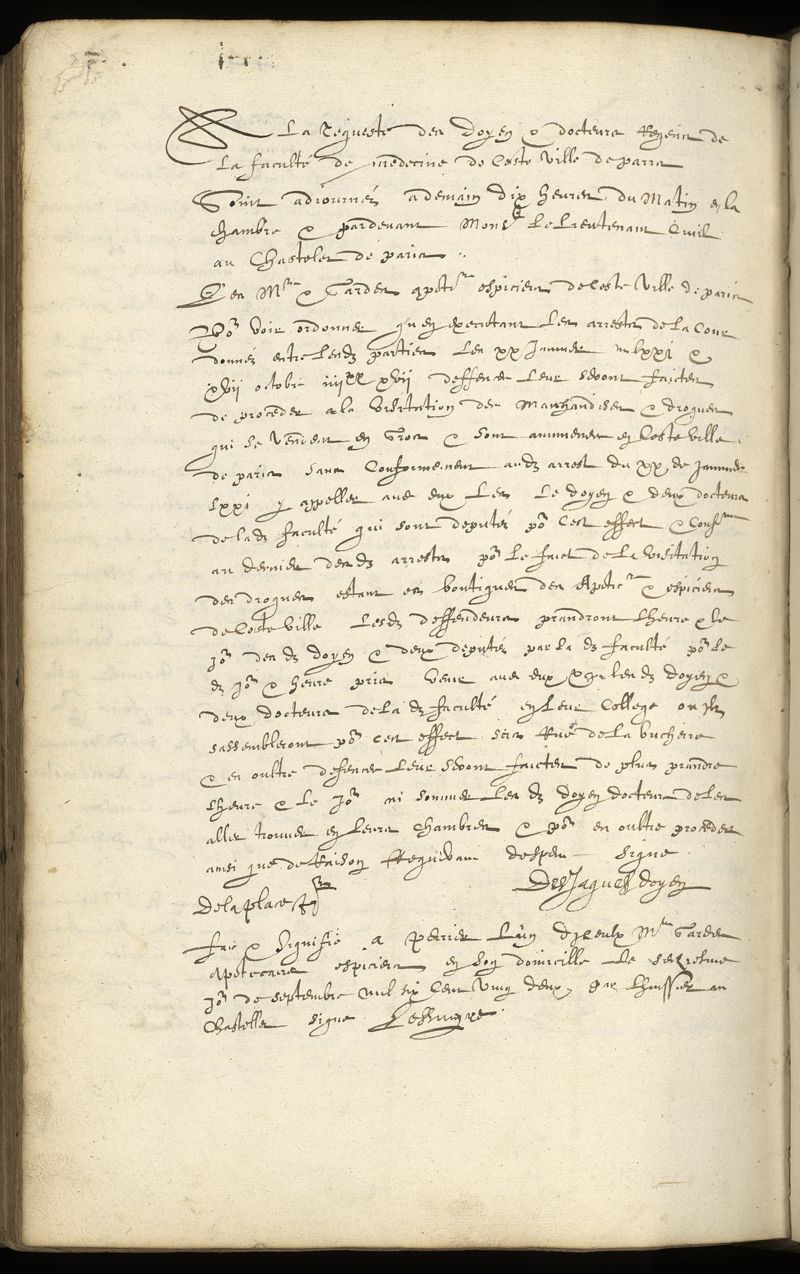 A La Requeste des doyen & docteurs Regens de
La faculté de medecine de Ceste Ville de paris
Soint adiournés a demain dix heures du Matin en la
chambre & pardevant Monsr Le Lieutenant Civil
au Chastelet de paris
Les Mres & Gardes apoticres espiciers de Ceste Ville de paris
Por Voir ordonner qu en executant Les arrests de La Cour
donnés entre Lesds parties Les xx Januier mvlxxi &
xvii octobre iiiixx xvii deffences Leur seront faictes
de proceder a la Visitation des Marchandises & drogues
qui se Vendent en Gros & sont ammenees en Ceste Ville
de paris sans Conformement audt arrest du xx de Januier
Lxxi y appeller avec eux Les Le doyen & deux docteurs
de lade faculté qui sont deputés por Cest effect & Confmement
au dernier desds arrests por Le faict de La Visitation
des drogues estant es boutiques des Apoticres & espiciers
de Ceste Ville Lesds deffendeurs prandront Lheure & le
Jor des ds doyen & deux deputés par la de faculté por Le
dt Jor & heure pris Venir avec eux Lesds doyen &
deux docteurs de La de faculté en Leur College ou ilz
sassembleront por Cest effect scis Rue de La bucherie
& en oultre defences Leur seront faictes de plus prandre
Lheure & Le Jor ni sommer Les ds doyen docteurs de Les
aller trouver en Leurs Chambres & por en oultre proceder
ainsi que de Raison Requerant despens Signe
Des Jaques doyen
Delaplace
faict & Signifié a perrier Lun d'iceulx Mres Gardes
apoticaires espiciers en son domicille Le seiziesme
Jor de septembre Mil six Cent Vingt deux, par Lhuissier au
Chastellet Signe